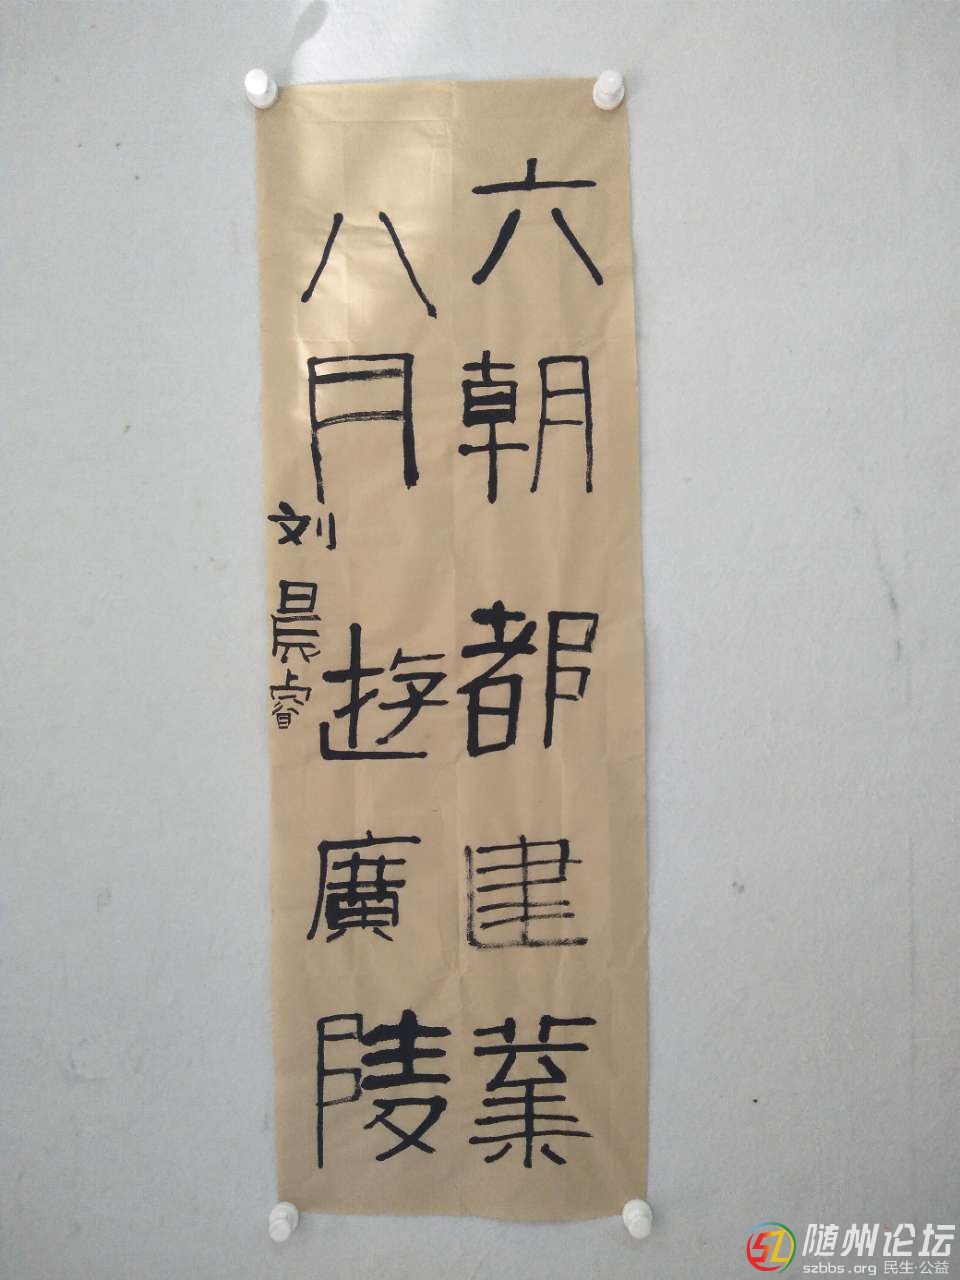 六朝都建業
八月遊廣陵
刘晨睿
随州论坛
szbbs.org 民生·公益